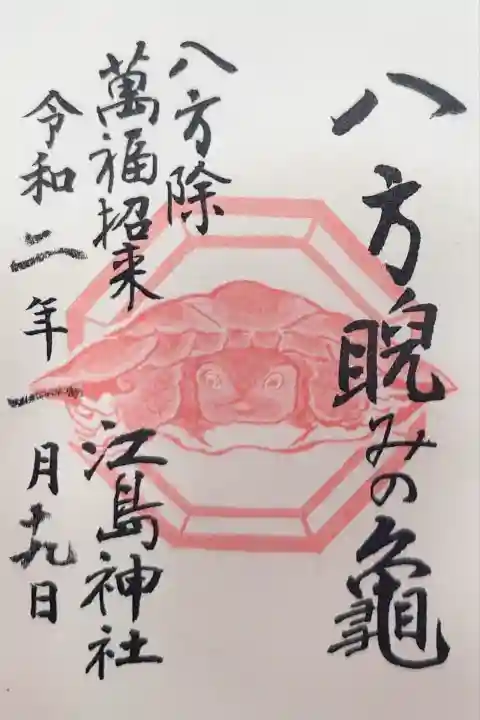 八方睨みの亀
八方除
萬福招来
江島神社
令和二年一月十九日